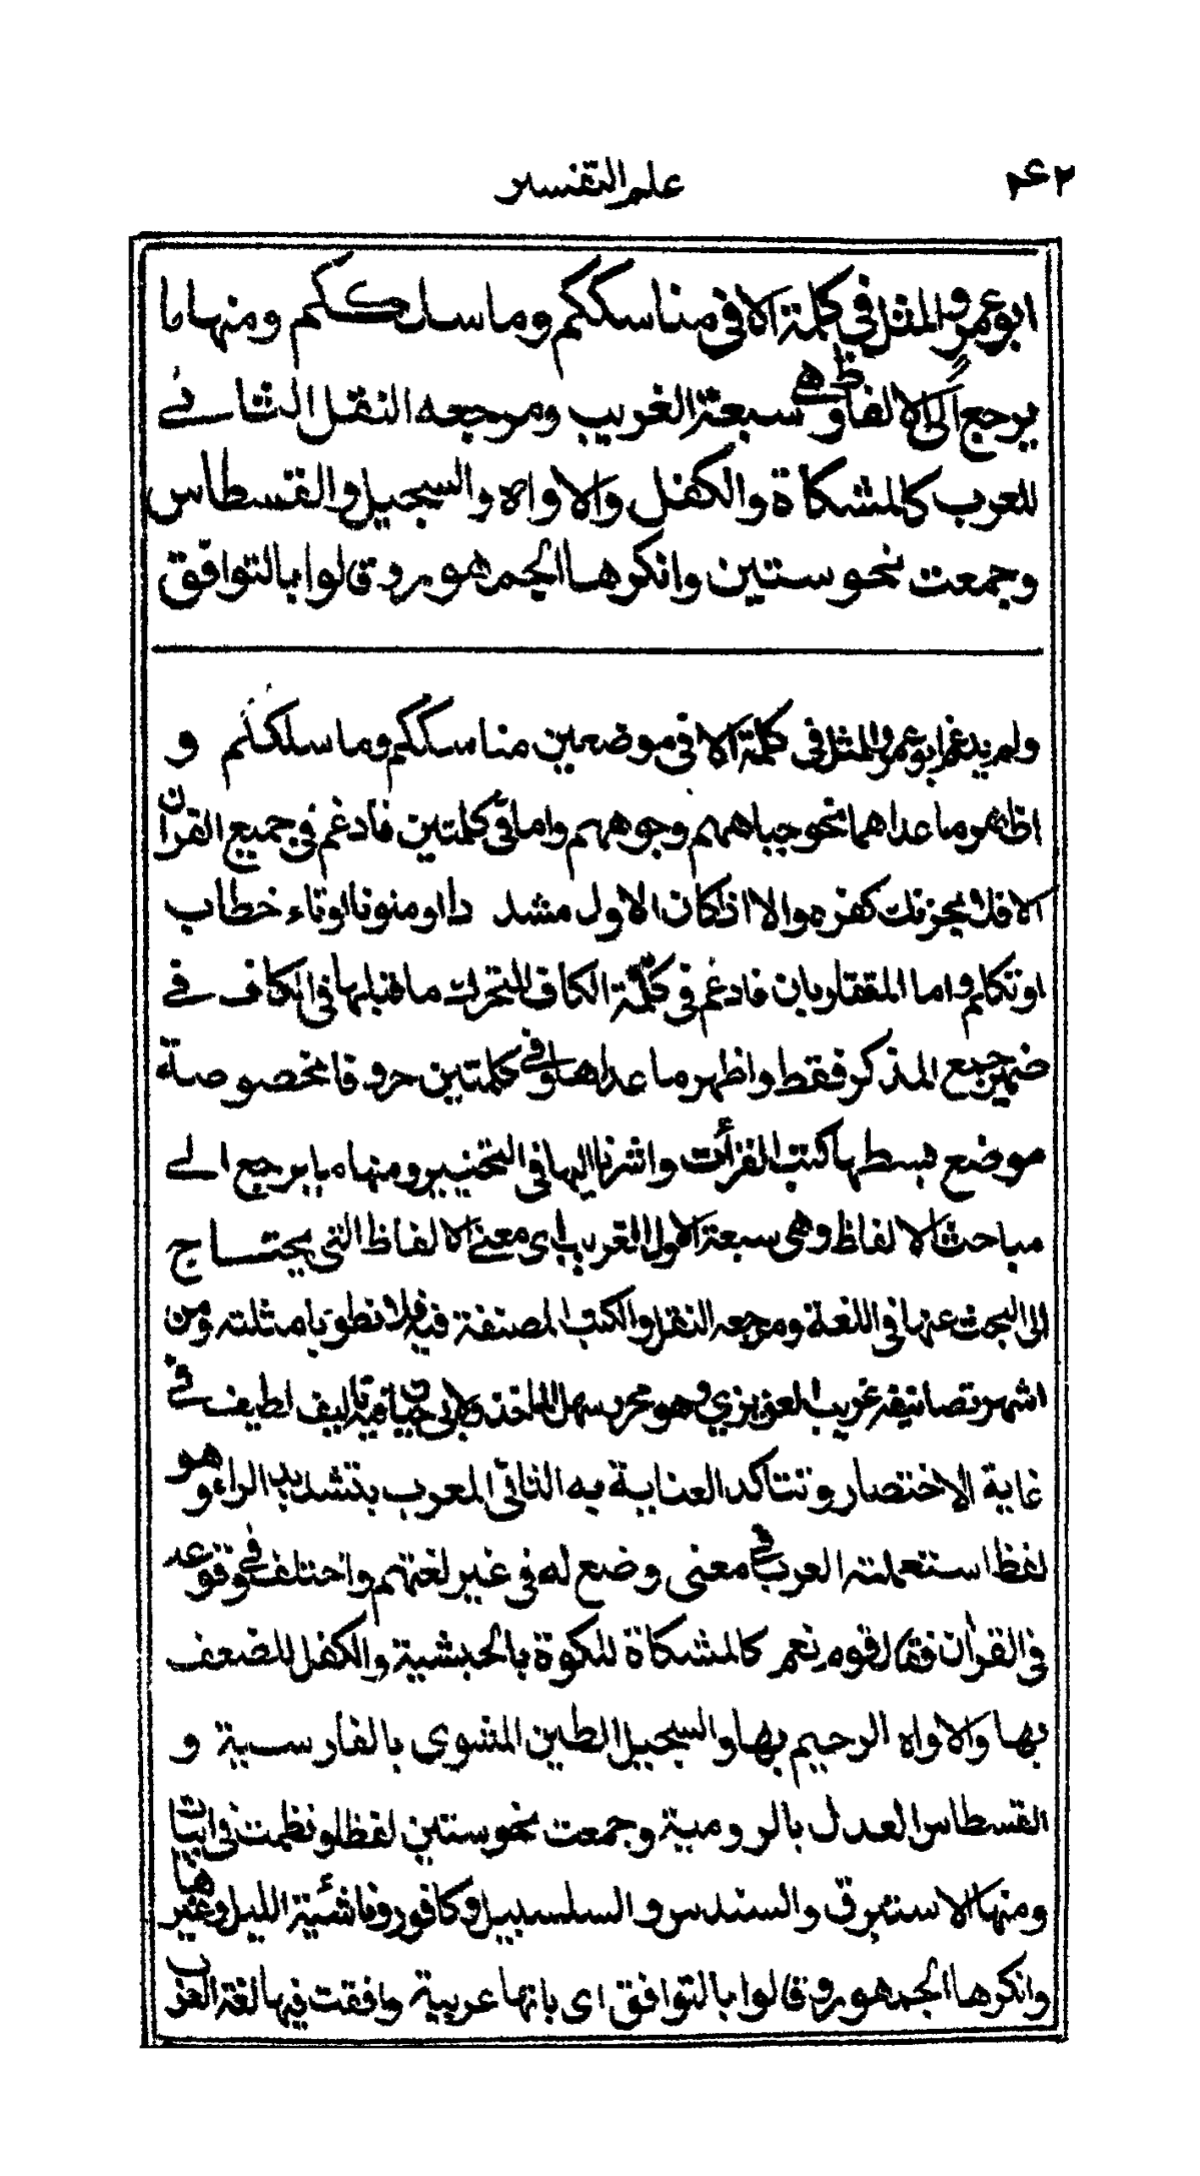 علم التفسير
٢٤٢
ابو عمرو المثل في كلمة الا في مناسككم وما سلككم ومنها ما
يرجع الى الالفاظ وهي سبعة الغريب ومرجعه النقل الثاني
المعرب كالمشكاة والكفل والاواه والسجيل والقسطاس
وجمعت نحو ستين وانكرها الجمهور وقالوا بالتوافق
ولم يدغم ابو عمرو المثل في كلمة الا في موضعين مناسككم وما سلككم و
اظهر ما عداهما نحو جباههم وجوههم واما في كلمتين فادغم في جميع القران
الا فلا يحزنك كفره والا اذا كان الاول مشددا او منونا او تاء خطاب
او تكلم واما المتقاربان فادغم في كلمة الكاف المتحرك ما قبلها في الكاف في
ضمير جمع المذكر فقط واظهر ما عداها وفي كلمتين حروفا مخصوصة
موضع بسطها كتب القرأت واشرنا اليها في التحبير ومنها ما يرجع الى
مباحث الالفاظ وهي سبعة الاول الغريب اى معنى الالفاظ التي يحتاج
الى البحث عنها في اللغة ومرجعه النقل والكتب المصنفة فيه فلا نطول بامثلته ومن
اشهر تصانيفه غريب العزيزي وهو محرر سهل الماخذ ولابى حيان فيه تاليف لطيف في
غاية الاختصار وتتاكد العناية به الثاني المعرب بتشديد الراء وهو
لفظ استعملته العرب في معنى وضع له في غير لغتهم واختلف في وقوعه
في القران فقال قوم نعم كالمشكاة للكوة بالحبشية والكفل للضعف
بها والاواه الرحيم بها والسجيل الطين المشوى بالفارسية و
القسطاس العدل بالرومية وجمعت نحو ستين لفظا ونظمت في ابيات
ومنها الاستبرق والسندس والسلسبيل وكافور وناشئة الليل وغيرها
وانكرها الجمهور وقالوا بالتوافق اى بانها عربية وافقت فيها لغة العرب